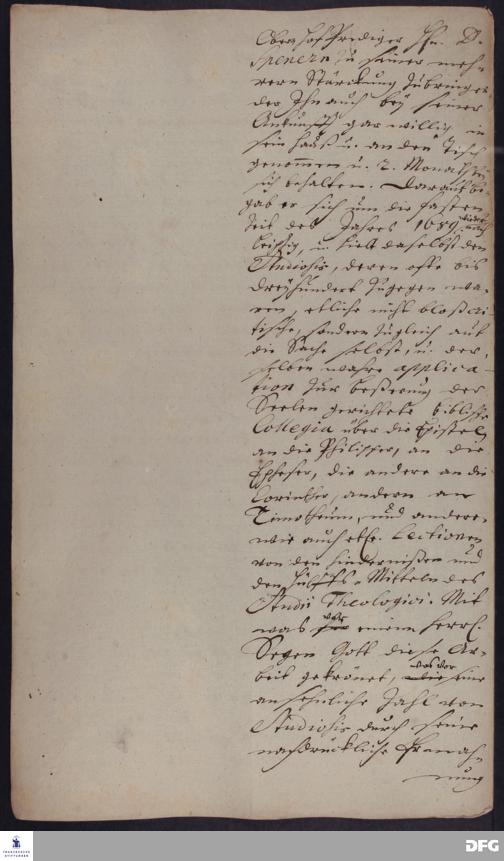 Ober hof Prediger Hn. D.
Spenern zu seiner meh-
rern Stärckung zubringen
der Ihn auch bey seiner
Ankunfft gar willig in
sein Hauß u. an den Tisch
genommen u. 2. Monath bey
sich behalten. Darauf be-
gab er sich um die Fasten
Zeit des Jahres 1689 wieder nach
Leipzig, u. hielt daselbst den
Studiosis, deren offte bis
dreyhundert zugegen wa-
ren, etliche nicht bloß cri-
tische, sondern zugleich auf
die Sache selbst, u. der-
selben wahre applica-
tion zur beßerung der
Seelen gerichtete biblische
Collegia über die Epistel
an die Philipper, an die
Epheser, die andere an die
Corinther, andern an
Timotheum, und andere
wie auch etl. Lectionen
von den Hindernißen und
den Hülffs-Mitteln des
Studii Theologici. Mit
was vor einem herrl.
Segen Gott diese Ar-
beit gekrönet, was vor eine
ansehnliche Zahl von
Studiosis durch seine
nachdrückliche Ermah-
nung
FRANCKESCHE STIFTUNGEN
DFG